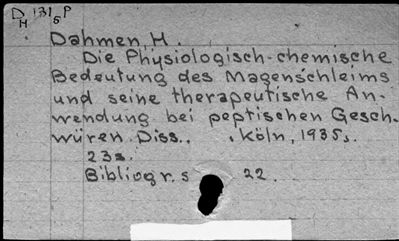 D 131 P
H 5
Dahmen H.
Die Physiologisch-chemische
Bedeutung des Magenschleims
und seine therapeutische An-
wendung bei peptischen Gesch-
würen. Diss., Köln, 1935,.
23s.
Bibliogr. s 22.